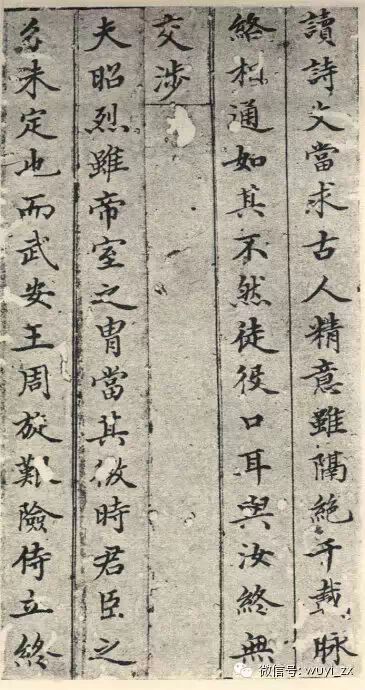 讀詩文當求古人精意雖隔絶千載脉
終相通如其不然徒役口耳與汝終無
交涉
夫昭烈雖帝室之冑當其微時君臣之
分未定也而武安王周旋艱險侍立終
微信号: wuyi_zx